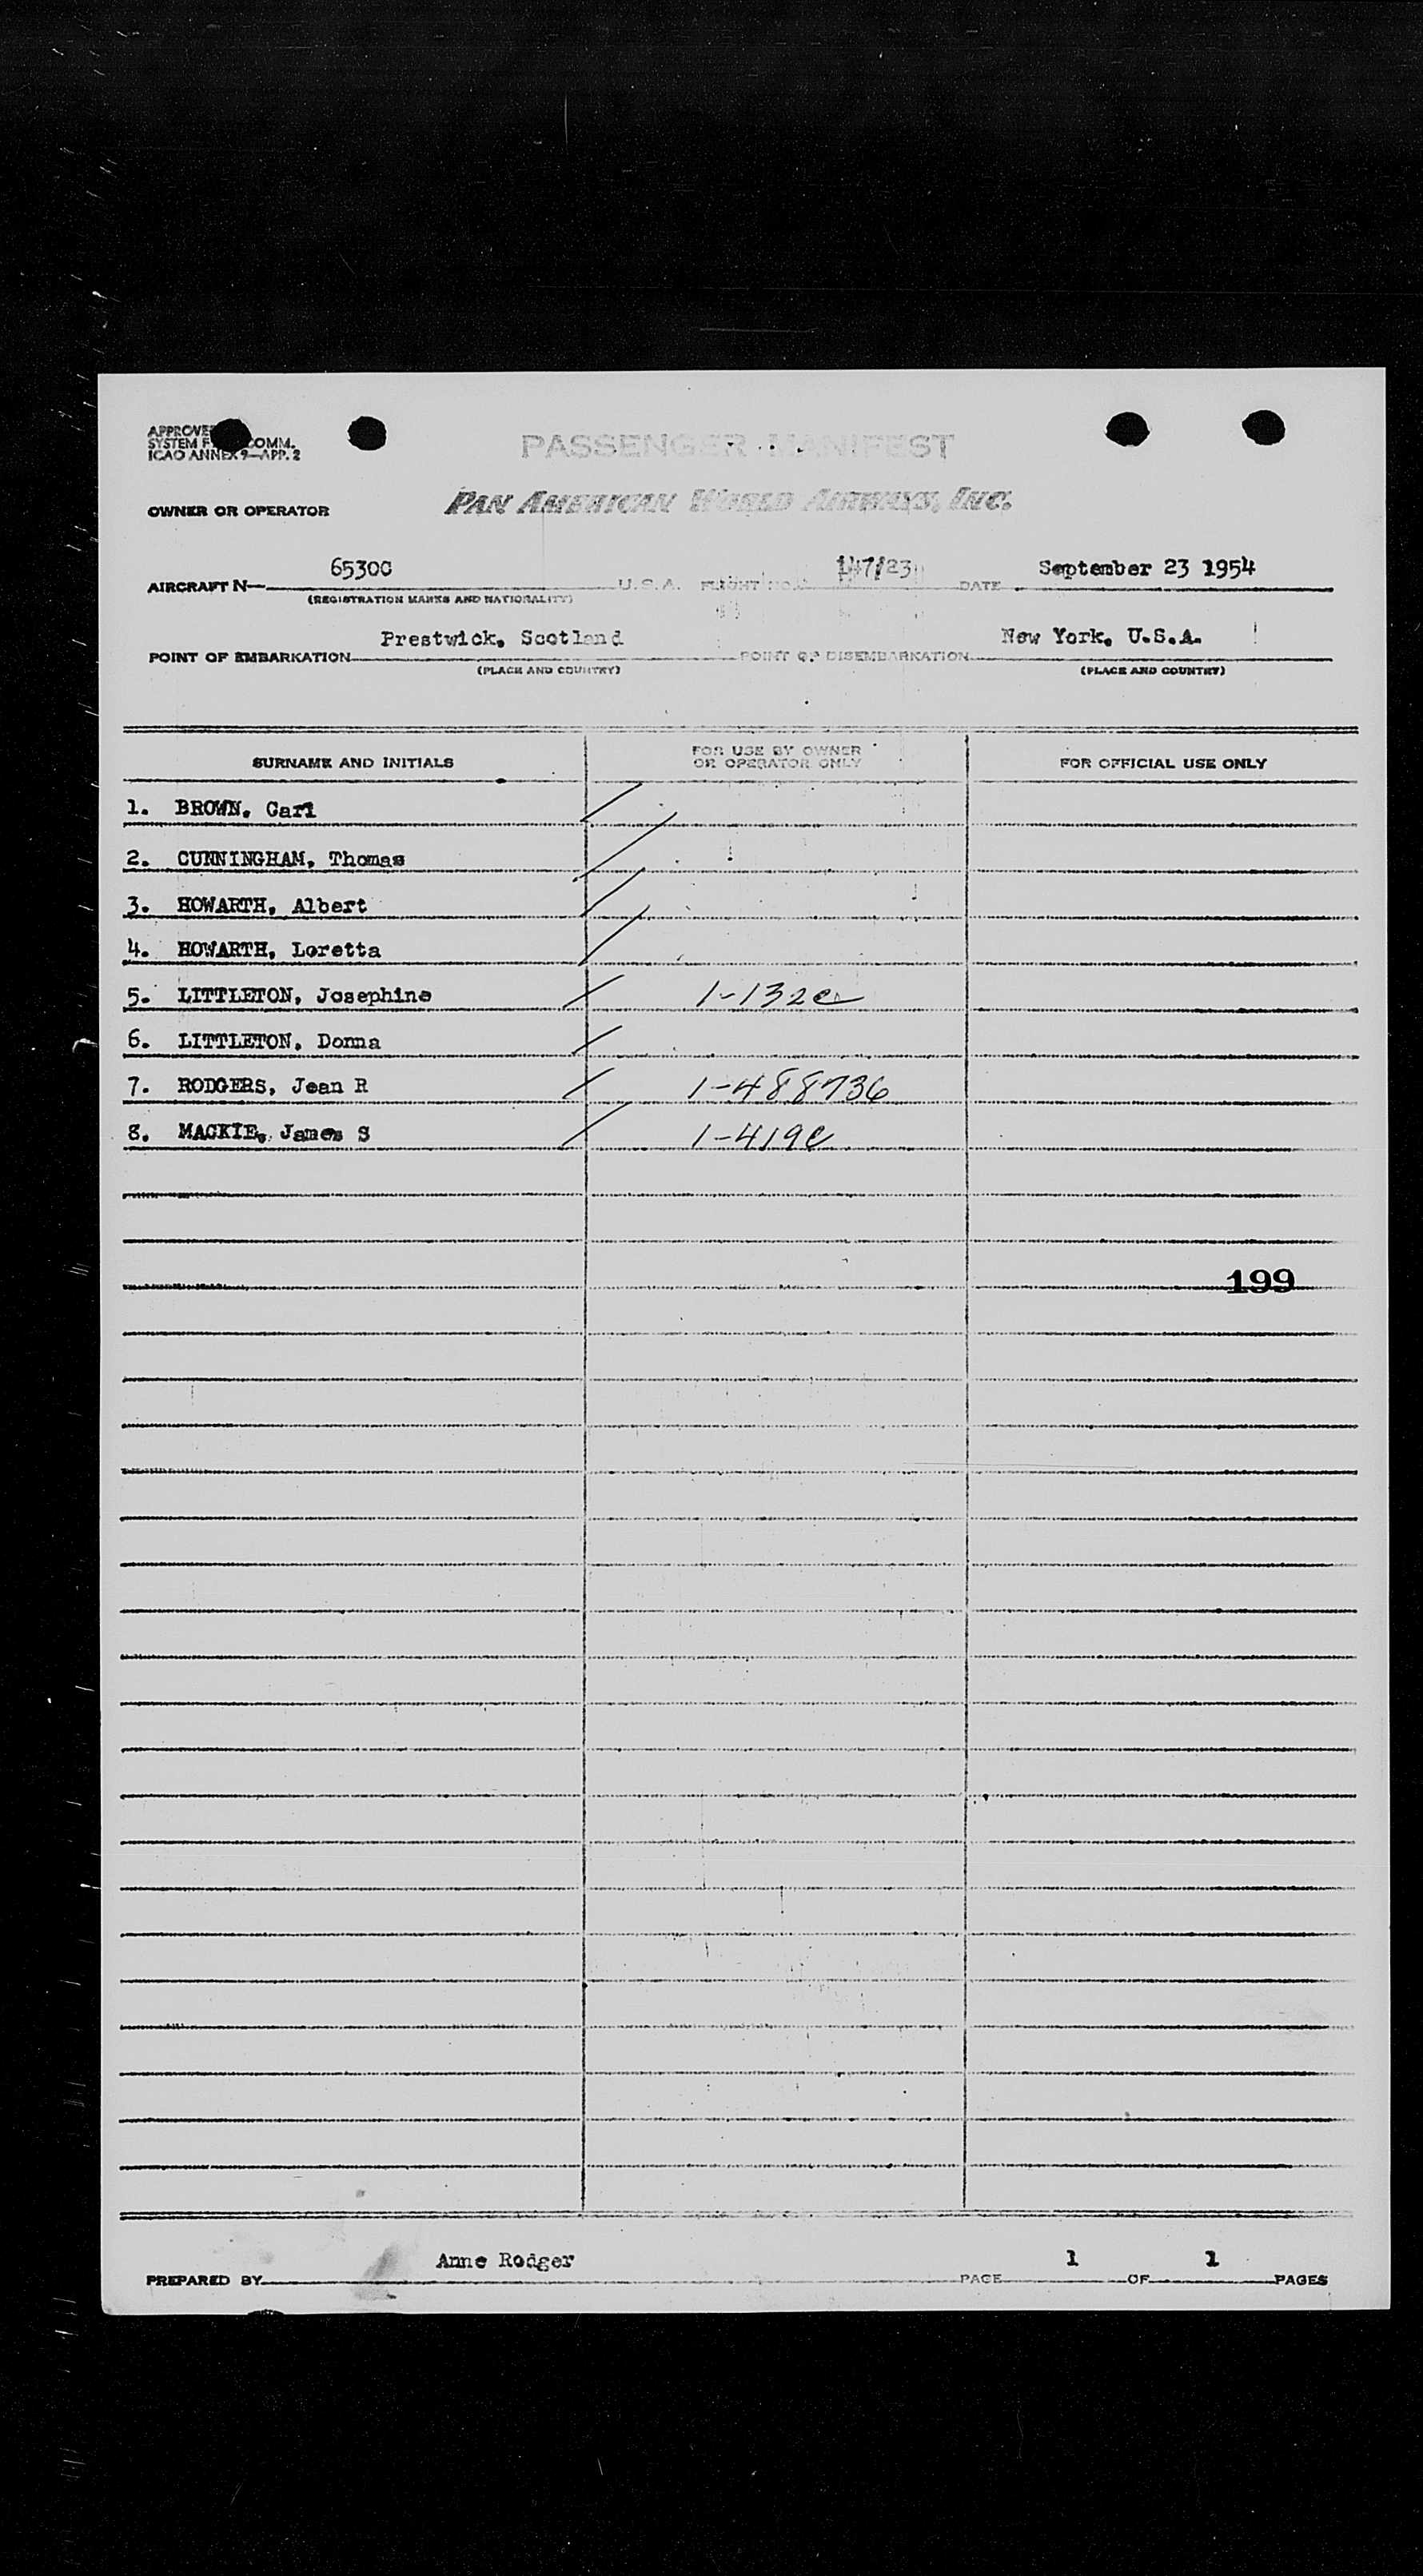 PASSENGER MANIFEST
ICAO ANNEX 9—APP. 2
OWNER OR OPERATOR PAN AMERICAN WORLD AIRWAYS, INC.
AIRCRAFT N— U.S.A. FLIGHT NO. 147/23 DATE September 23 1954
(REGISTRATION MARKS AND NATIONALITY)
POINT OF EMBARKATION Prestwick, Scotland POINT OF DISEMBARKATION New York, U.S.A.
(PLACE AND COUNTRY) (PLACE AND COUNTRY)
SURNAME AND INITIALS FOR USE BY OWNER OR OPERATOR ONLY FOR OFFICIAL USE ONLY
1. BROWN, Carl
2. CUNNINGHAM, Thomas
3. HOWARTH, Albert
4. HOWARTH, Loretta
5. LITTLETON, Josephine 1-132e
6. LITTLETON, Donna
7. RODGERS, Jean R 1-488736
8. MACKIE, James S 1-419e
199
PREPARED BY Anne Rodger PAGE 1 OF 1 PAGES